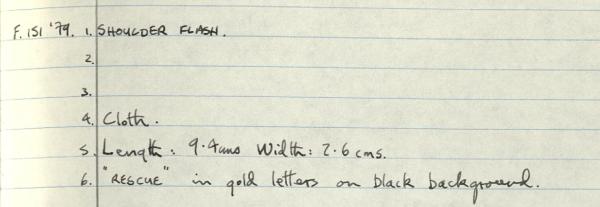 F.151 '79. 1. SHOULDER FLASH.
2.
3.
4. Cloth.
5. Length: 9.4cms Width: 2.6 cms.
6. "RESCUE" in gold letters on black background.